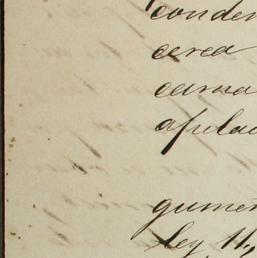 conden
cerca
causa
apelac
gumen
ley 11,